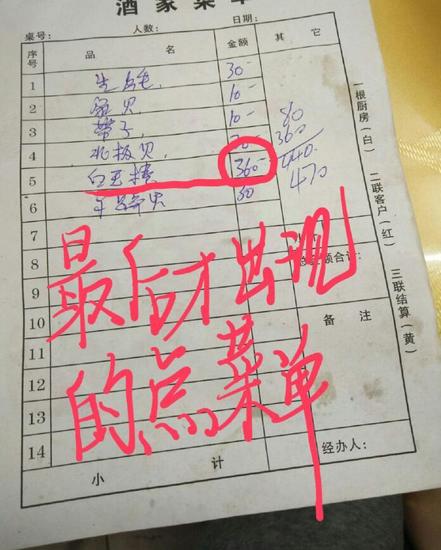 酒家菜单
桌号： 人数： 日期：
序号 品名 金额 其它
1 生蚝 30-
2 10-
3 带子 10-
4 地板贝 30-
5 白玉螺 360-
6 30
7
8
9
10
11
12
13
14
小计
360
440
470
总金额合计：
备注
经办人：
一根厨房（白）
二联客户（红）
三联结算（黄）
最后才出现
的点菜单